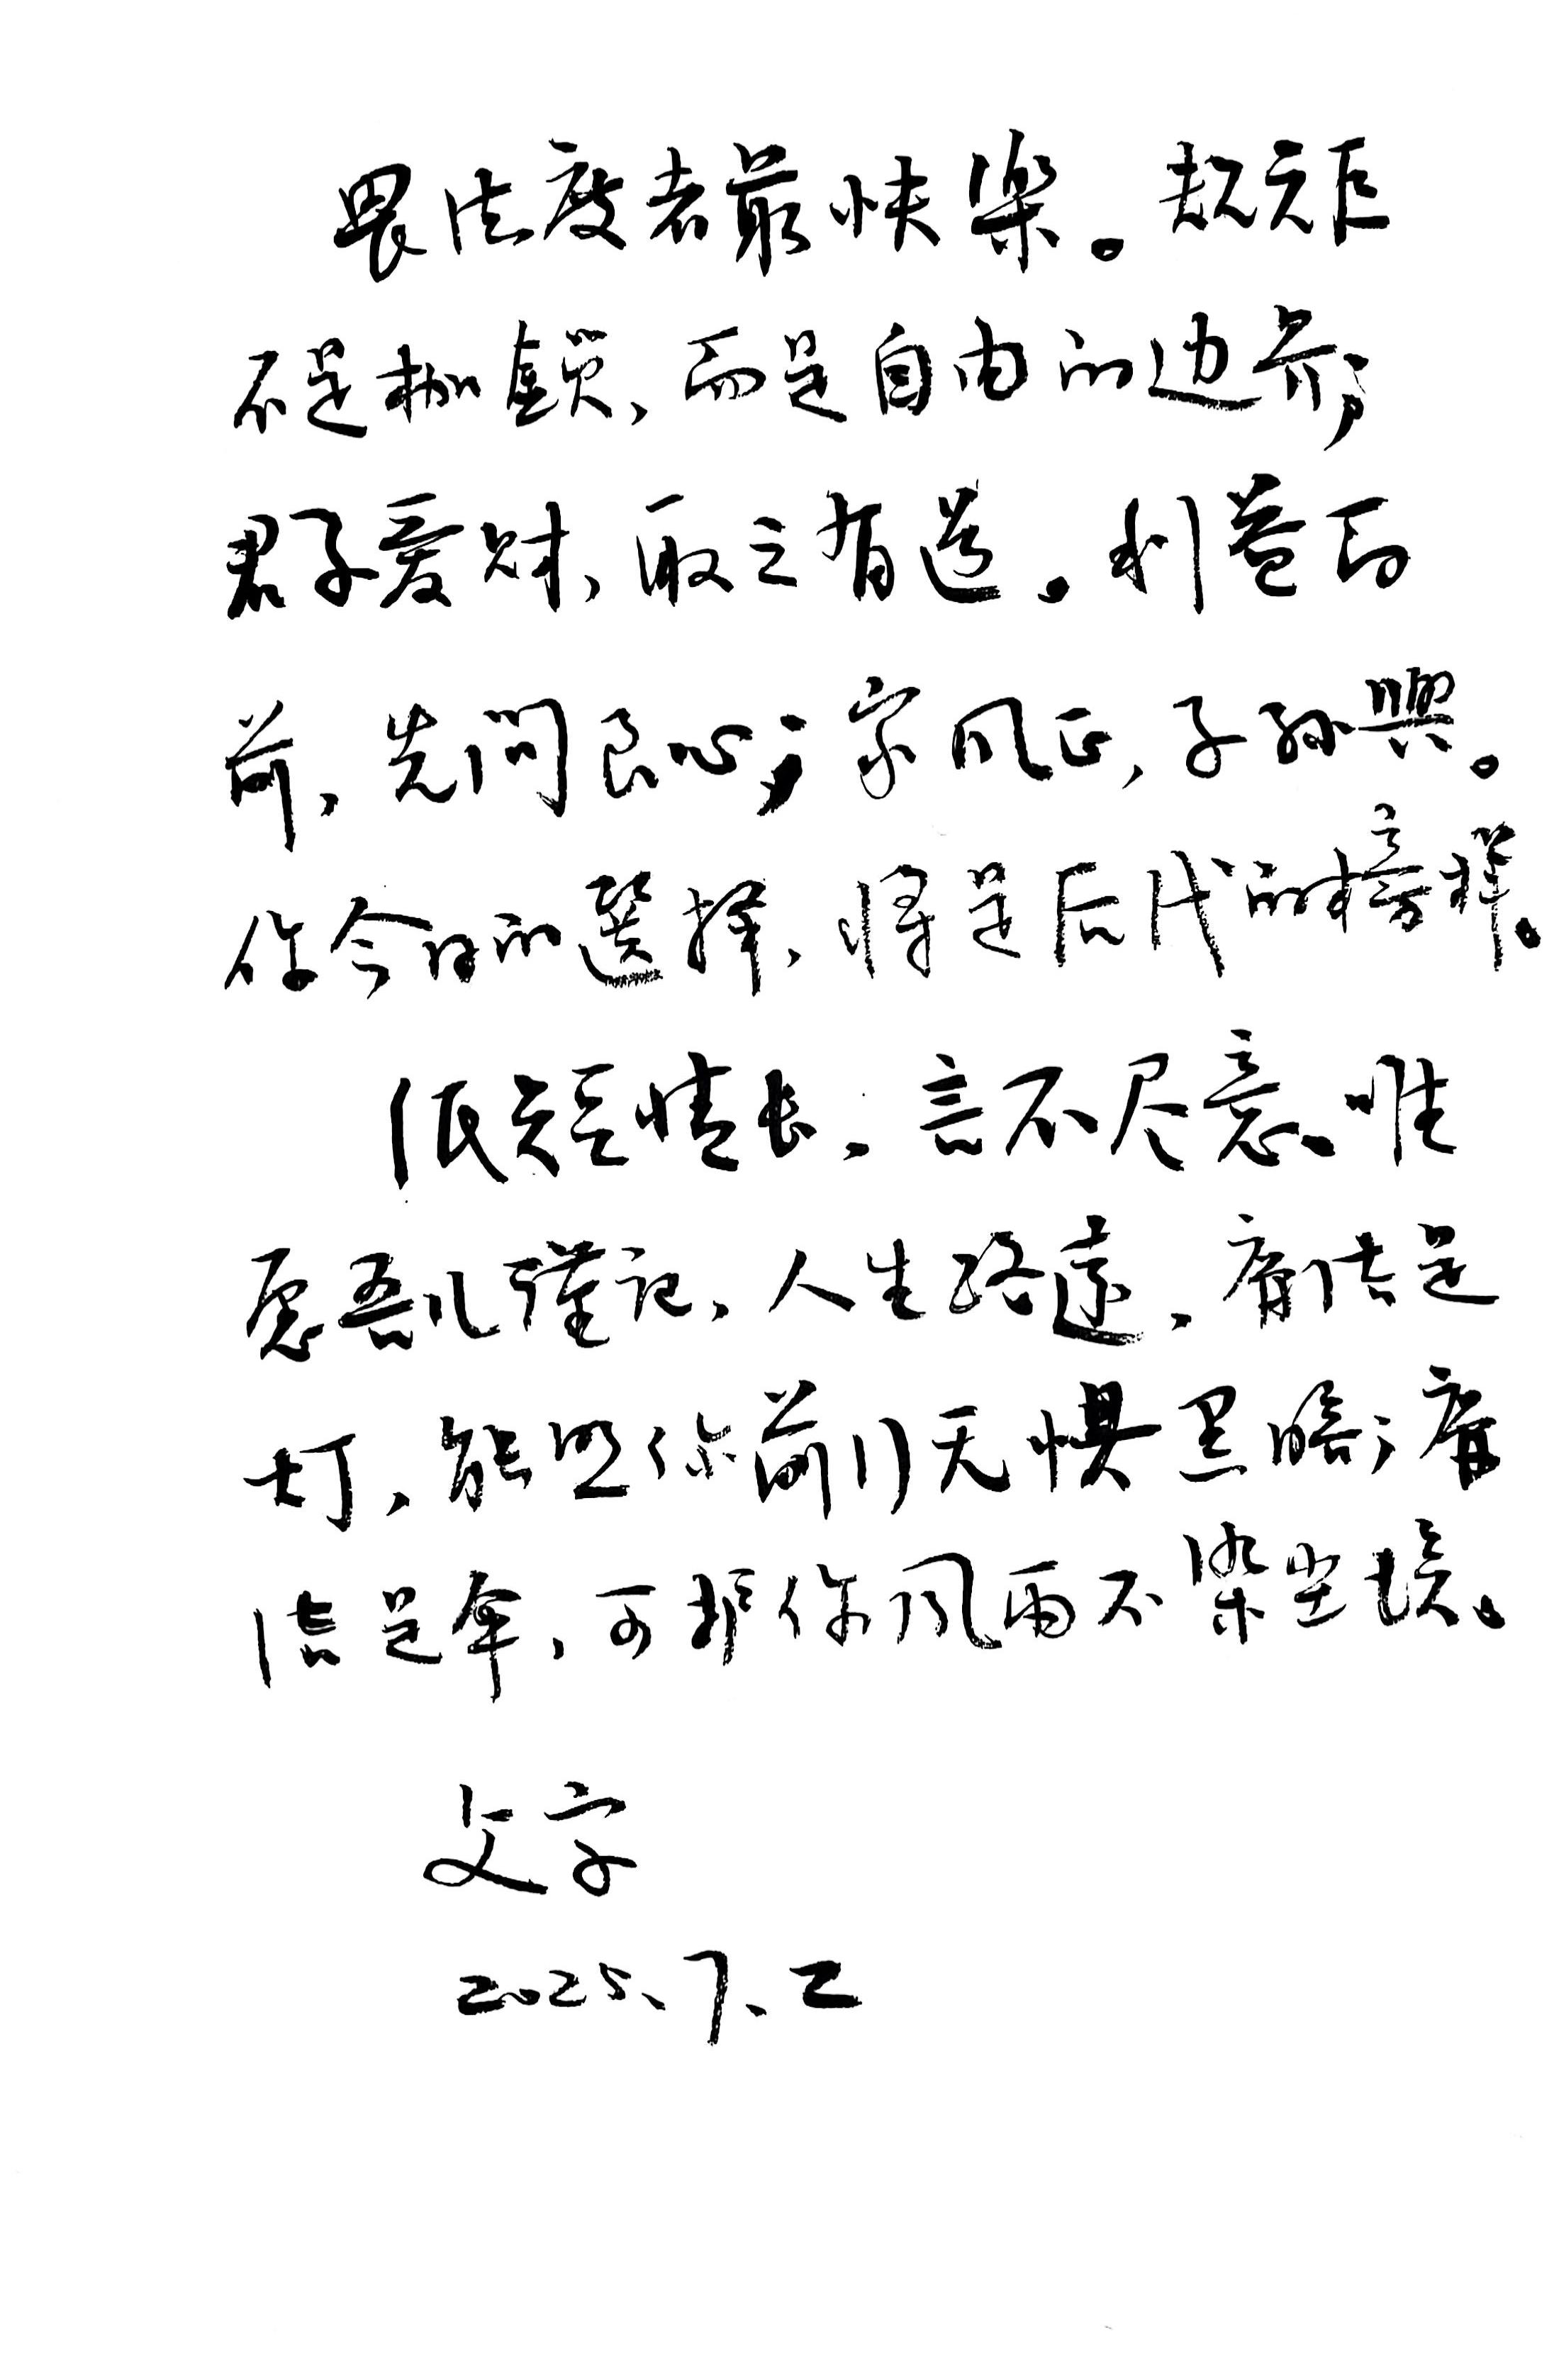 畏法度者最快樂。规矩
不是枷鎖,而是自由的边界;
君子爱财,取之有道。利益面
前,先问良心;家风正,子孙興。
你今日的選择,将是后代的榜样。
纸短情长,言不尽意。惟
愿吾儿谨记,人生路遠,廉洁是
灯,能照你前行无惧黑暗;廉
洁是伞,可护你风雨不染尘埃。
父字
2025.7.2